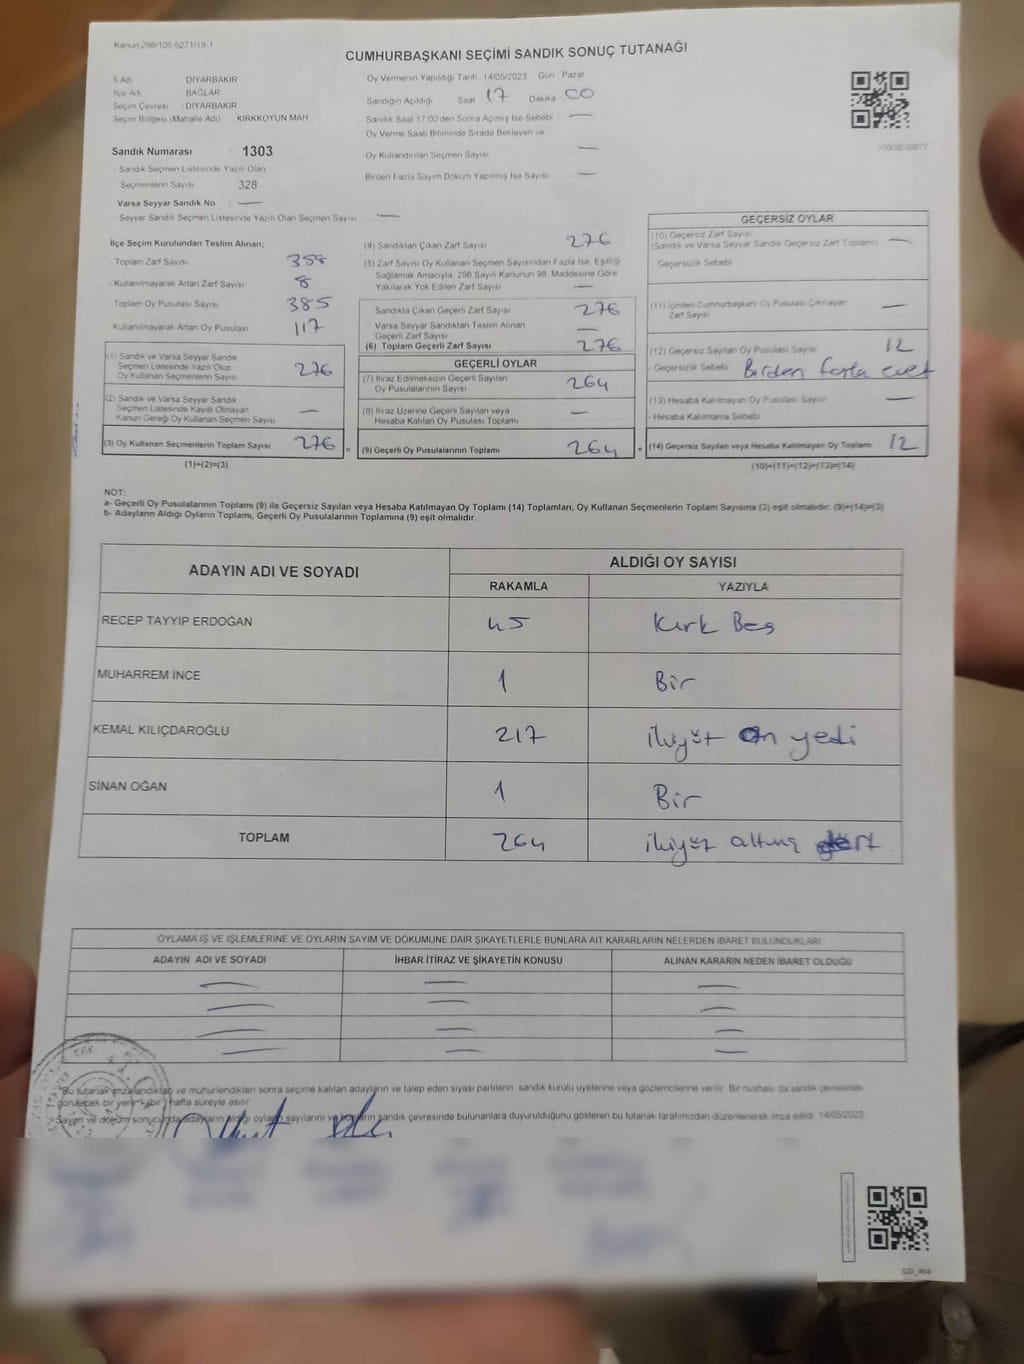 Kanun:298/105,6271/18-1
CUMHURBAŞKANI SEÇİMİ SANDIK SONUÇ TUTANAĞI
İl Adı DİYARBAKIR
İlçe Adı BAĞLAR
Seçim Çevresi : DİYARBAKIR
Seçim Bölgesi (Mahalle Adı) KIRKKOYUN MAH
Sandık Numarası : 1303
- Sandık Seçmen Listesinde Yazılı Olan
Seçmenlerin Sayısı 328
Varsa Seyyar Sandık No : —
- Seyyar Sandık Seçmen Listesinde Yazılı Olan Seçmen Sayısı —
Oy Vermenin Yapıldığı Tarih 14/05/2023 Gün Pazar
Sandığın Açıldığı Saat 17 Dakika 00
Sandık Saat 17:00'den Sonra Açılmış İse Sebebi —
Oy Verme Saati Bitiminde Sırada Bekleyen ve
Oy Kullandırılan Seçmen Sayısı —
Birden Fazla Sayım Döküm Yapılmış İse Sayısı —
İlçe Seçim Kurulundan Teslim Alınan;
- Toplam Zarf Sayısı
- Kullanılmayarak Artan Zarf Sayısı 8
Toplam Oy Pusulası Sayısı 385
Kullanılmayarak Artan Oy Pusulası 117
(1) Sandık ve Varsa Seyyar Sandık
Seçmen Listesinde Yazılı Olup
Oy Kullanan Seçmenlerin Sayısı 276
(2) Sandık ve Varsa Seyyar Sandık
Seçmen Listesinde Kayıtlı Olmayan
Kanun Gereği Oy Kullanan Seçmen Sayısı —
(3) Oy Kullanan Seçmenlerin Toplam Sayısı 276 =
(1)+(2)=(3)
(4) Sandıktan Çıkan Zarf Sayısı 276
(5) Zarf Sayısı Oy Kullanan Seçmen Sayısından Fazla İse, Eşitliği
Sağlamak Amacıyla, 298 Sayılı Kanunun 98. Maddesine Göre
Yakılarak Yok Edilen Zarf Sayısı —
Sandıkta Çıkan Geçerli Zarf Sayısı 276
Varsa Seyyar Sandıktan Teslim Alınan
Geçerli Zarf Sayısı —
(6) Toplam Geçerli Zarf Sayısı 276
GEÇERLİ OYLAR
(7) İtiraz Edilmeksizin Geçerli Sayılan
Oy Pusulalarının Sayısı 264
(8) İtiraz Üzerine Geçerli Sayılan veya
Hesaba Katılan Oy Pusulası Toplamı —
(9) Geçerli Oy Pusulalarının Toplamı 264 +
GEÇERSİZ OYLAR
(10) Geçersiz Zarf Sayısı
(Sandık ve Varsa Seyyar Sandık Geçersiz Zarf Toplamı) —
- Geçersizlik Sebebi
(11) İçinden Cumhurbaşkanı Oy Pusulası Çıkmayan
Zarf Sayısı —
(12) Geçersiz Sayılan Oy Pusulası Sayısı 12
- Geçersizlik Sebebi Birden fazla evet
(13) Hesaba Katılmayan Oy Pusulası Sayısı —
- Hesaba Katılmama Sebebi
(14) Geçersiz Sayılan veya Hesaba Katılmayan Oy Toplamı 12
(10)+(11)+(12)+(13)=(14)
NOT:
a- Geçerli Oy Pusulalarının Toplamı (9) ile Geçersiz Sayılan veya Hesaba Katılmayan Oy Toplamı (14) Toplamları, Oy Kullanan Seçmenlerin Toplam Sayısına (3) eşit olmalıdır. (9)+(14)=(3)
b- Adayların Aldığı Oyların Toplamı, Geçerli Oy Pusulalarının Toplamına (9) eşit olmalıdır.
ADAYIN ADI VE SOYADI ALDIĞI OY SAYISI
RAKAMLA YAZIYLA
RECEP TAYYİP ERDOĞAN 45 Kırk Beş
MUHARREM İNCE 1 Bir
KEMAL KILIÇDAROĞLU 217 ikiyüz On yedi
SİNAN OĞAN 1 Bir
TOPLAM 264 ikiyüz altmış dört
OYLAMA İŞ VE İŞLEMLERİNE VE OYLARIN SAYIM VE DÖKÜMÜNE DAİR ŞİKAYETLERLE BUNLARA AİT KARARLARIN NELERDEN İBARET BULUNDUKLARI
ADAYIN ADI VE SOYADI İHBAR İTİRAZ VE ŞİKAYETİN KONUSU ALINAN KARARIN NEDEN İBARET OLDUĞU
— — —
— — —
— — —
— — —
"Bu tutanak imzalandıktan ve mühürlendikten sonra seçime katılan adayların ve talep eden siyasi partilerin sandık kurulu üyelerine veya gözlemcilerine verilir. Bir nüshası da sandık çevresinde
görülecek bir yere 1 (bir) hafta süreyle asılır.
Sayım ve döküm sonucunda adayların aldığı oyların sayılarını ve sandık çevresinde bulunanlara duyurulduğunu gösteren bu tutanak tarafımızdan düzenlenerek imza edildi. 14/05/2023